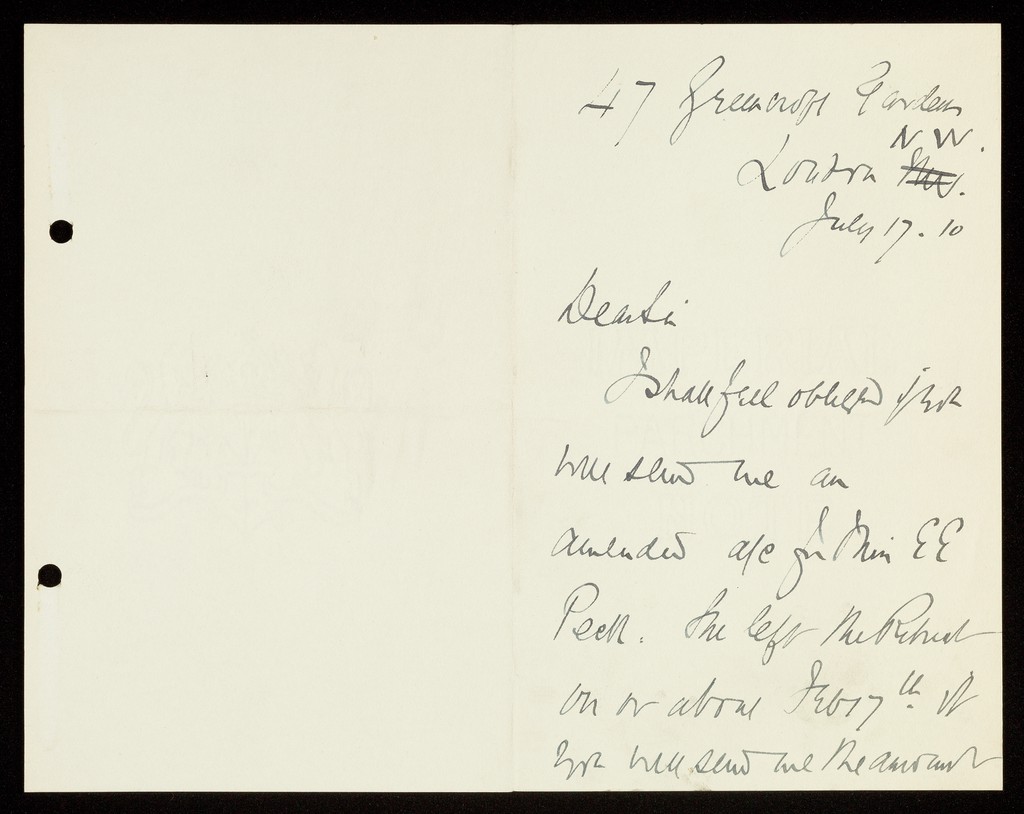 47 Greencroft Gardens
N.W.
London
July 17. 10
Dear Sir
I shall feel obliged if you
will send me an
amended a/c for Miss E E
Peck. She left the Retreat
on or about Feb 17th if
you will send me the amount